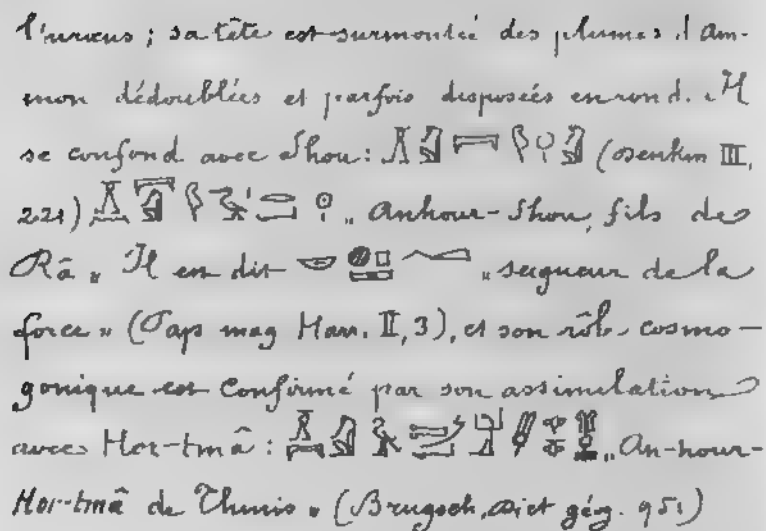 l'uræus ; sa tête est surmontée des plumes d'Am-
mon dédoublées et parfois disposées en rond. Il
se confond avec Shou : (Denkm III,
221) „ Anhour-Shou, fils de
Râ „ Il est dit „ seigneur de la
force „ (Pap mag Harr. II, 3), et son rôle cosmo-
gonique est confirmé par son assimilation
avec Hor-tmâ : „ An-hour-
Hor-tmâ de Thinis „ (Brugsch, Dict géog. 951)